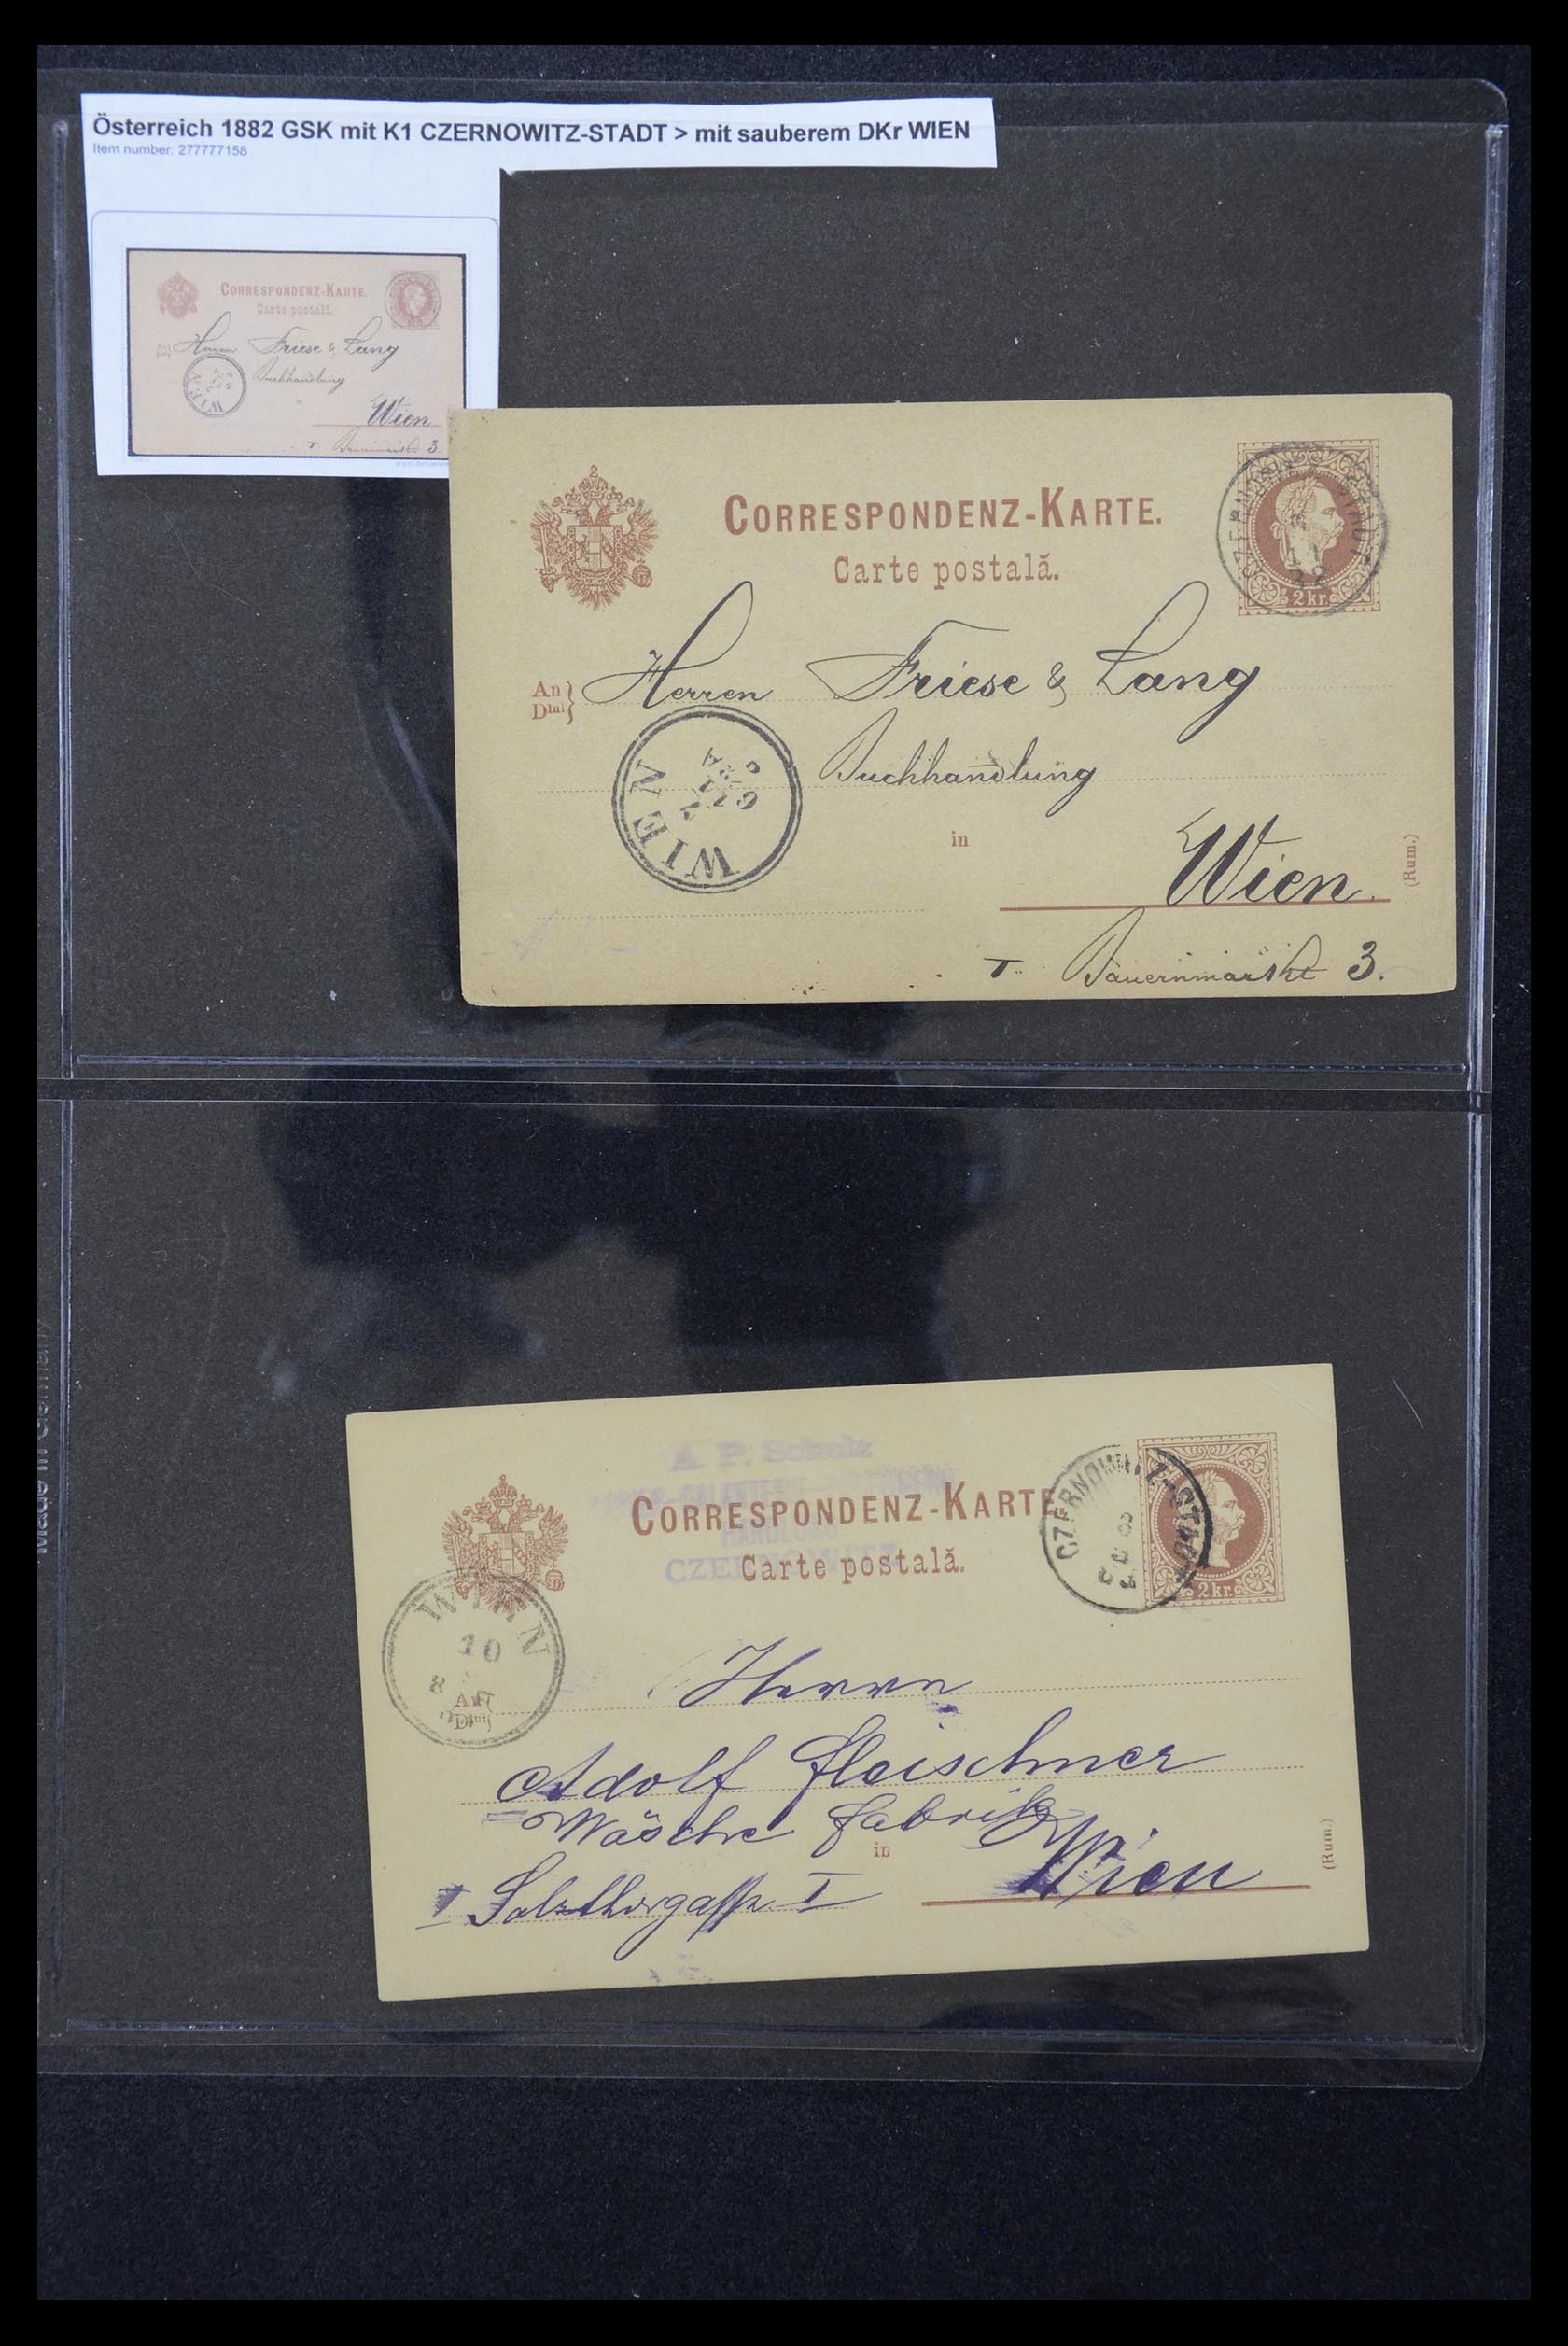 Österreich 1882 GSK mit K1 CZERNOWITZ-STADT > mit sauberem DKr WIEN
Item number: 277777158
CORRESPONDENZ-KARTE.
Carte postală.
Herren Friese & Lang
Buchhandlung
WIEN
Wien
3.
CORRESPONDENZ-KARTE.
Carte postală.
CZERNOWITZ STADT
2 kr.
An
Dlui
Herren Friese & Lang
Buchhandlung
WIEN
in
Wien.
(Rum.)
I. Bauernmarkt 3.
A. P. Schulz
CZERNOWITZ
CORRESPONDENZ-KARTE
Carte postală.
CZERNOWITZ-STADT
2 kr.
WIEN
10
8
An
Dlui
Herrn
Adolf Fleischner
Wäsche Fabrik
in
Wien
(Rum.)
I Salzthorgasse I
Made in Germany